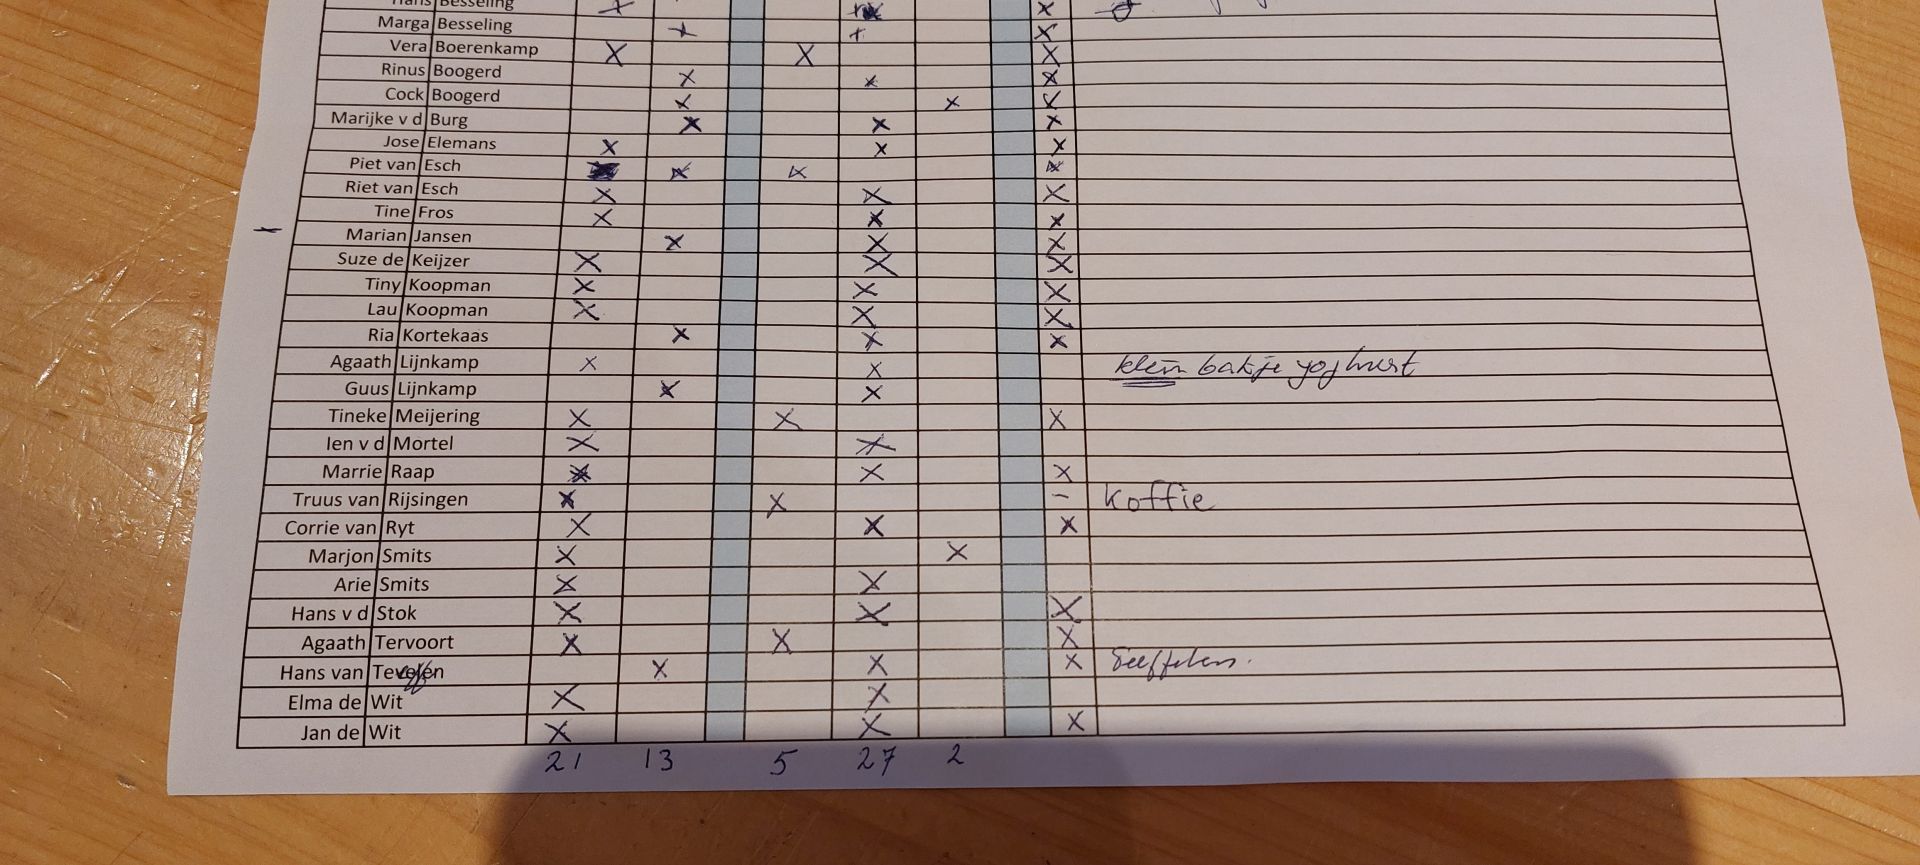 Hans Besseling x x x
Marga Besseling x x x
Vera Boerenkamp x x x
Rinus Boogerd x x x
Cock Boogerd x x x
Marijke v d Burg x x x
Jose Elemans x x x
Piet van Esch x x x
Riet van Esch x x x
Tine Fros x x x
Marian Jansen x x x
Suze de Keijzer x x x
Tiny Koopman x x x
Lau Koopman x x x
Ria Kortekaas x x x
Agaath Lijnkamp x x klein bakje yoghurt
Guus Lijnkamp x x
Tineke Meijering x x x
Ien v d Mortel x x
Marrie Raap x x x
Truus van Rijsingen x x - Koffie
Corrie van Ryt x x x
Marjon Smits x x
Arie Smits x x
Hans v d Stok x x x
Agaath Tervoort x x x
Hans van x x x
Elma de Wit x x
Jan de Wit x x x
21 13 5 27 2